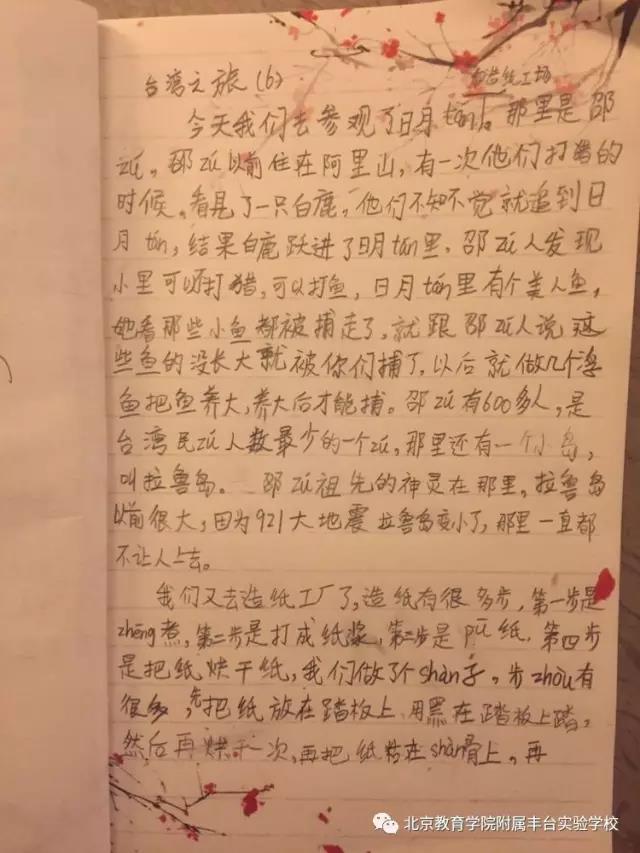 台湾之旅(6)
造纸工场
今天我们去参观了日月tán。那里是邵
zú。邵zú以前住在阿里山，有一次他们打猎的
时候。看见了一只白鹿，他们不知不觉就追到日
月tán，结果白鹿跃进了日月tán里。邵zú人发现
小里可以打猎，可以打鱼，日月tán里有个美人鱼，
她看那些小鱼都被捕走了，就跟邵zú人说这
些鱼的没长大就被你们捕了，以后就做几个浮
鱼把鱼养大，养大后才能捕。邵zú有600多人，是
台湾民zú人数最少的一个zú，那里还有一个小岛，
叫拉鲁岛。邵zú祖先的神灵在那里，拉鲁岛
以前很大，因为921大地震拉鲁岛变小了，那里一直都
不让人上去。
我们又去造纸工厂了，造纸有很多步，第一步是
zhēng煮，第二步是打成纸浆，第三步是pū纸，第四步
是把纸烘干纸，我们做了个shàn子，步zhòu有
很多，先把纸放在踏板上，用黑在踏板上踏。
然后再烘干一次，再把纸粘在shàn骨上，再
北京教育学院附属丰台实验学校